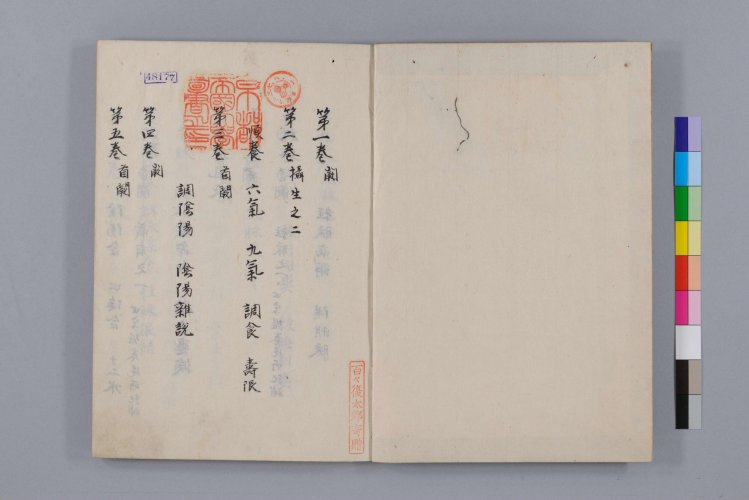 第一巻 闕
第二巻 攝生之二
順養 六氣 九氣 調食 壽限
第三巻 首闕
調陰陽 陰陽雜説
第四巻 闕
第五巻 首闕
48177
百々復太郎寄贈